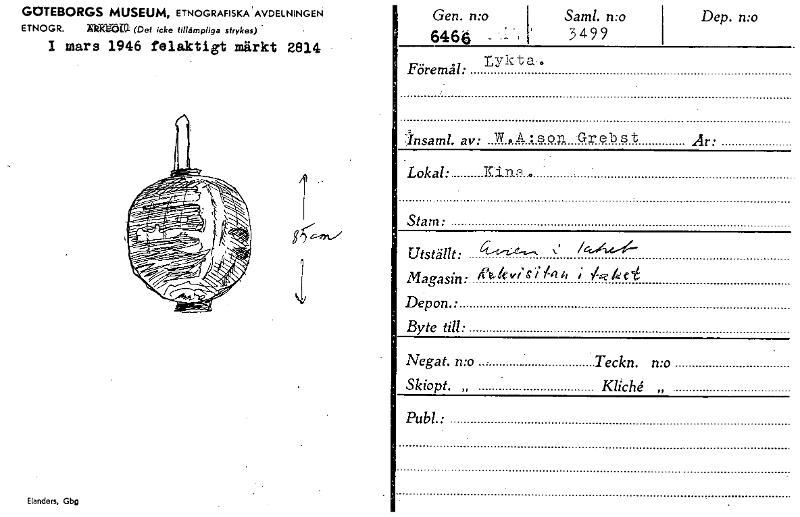 GÖTEBORGS MUSEUM, ETNOGRAFISKA AVDELNINGEN
ETNOGR. ARKEOL. (Det icke tillämpliga strykes)
I mars 1946 felaktigt märkt 2814
85 cm
Elanders, Gbg
Gen. n:o Saml. n:o Dep. n:o
6466 3499
Föremål: Lykta.
Insaml. av: W.A:son Grebst År:
Lokal: Kina.
Stam:
Utställt: i taket
Magasin: Rekvisitan i taket
Depon.:
Byte till:
Negat. n:o Teckn. n:o
Skiopt. „ Kliché „
Publ.: